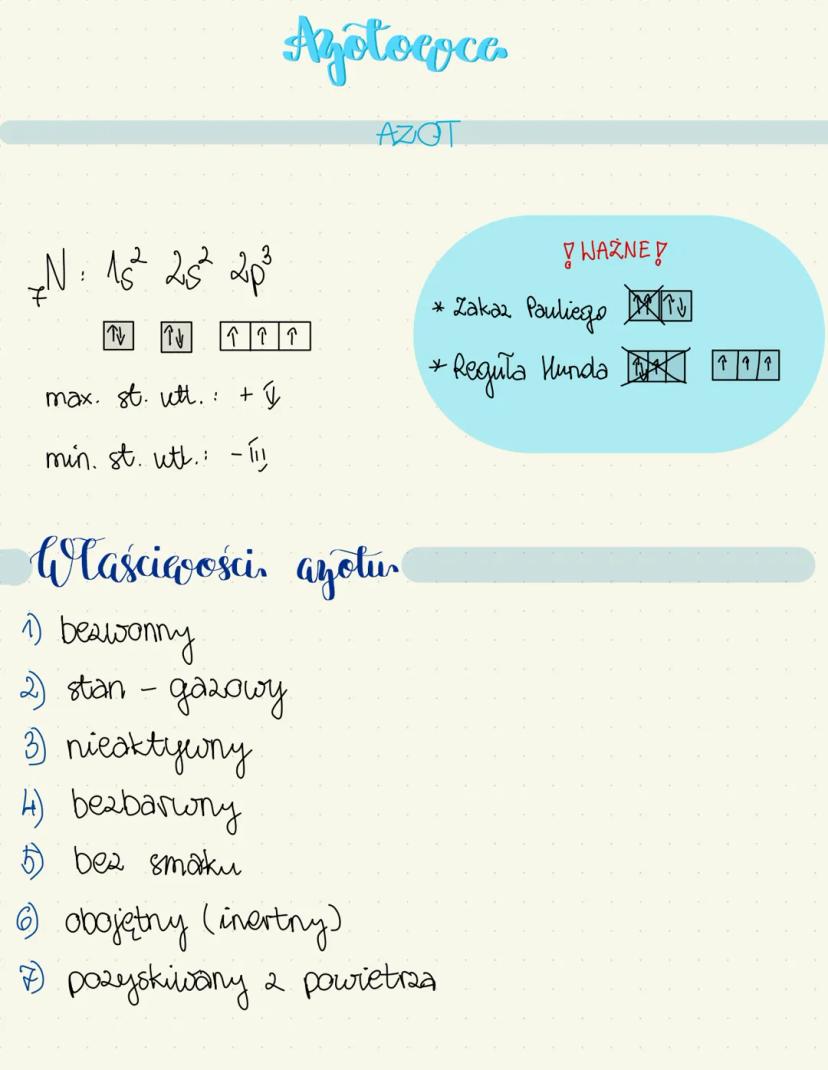 Azotowce
AZOT
₇N: 1s² 2s² 2p³
↑↓ ↑↓ ↑ ↑ ↑
max. st. utl.: + V
min. st. utl.: - III
! WAŻNE !
* Zakaz Pauliego ↑↑ ↑↓
* Reguła Hunda ↑↓ ↑ ↑ ↑ ↑
Właściwości azotu
1) bezwonny
2) stan - gazowy
3) nieaktywny
4) bezbarwny
5) bez smaku
6) obojętny (inertny)
7) pozyskiwany z powietrza